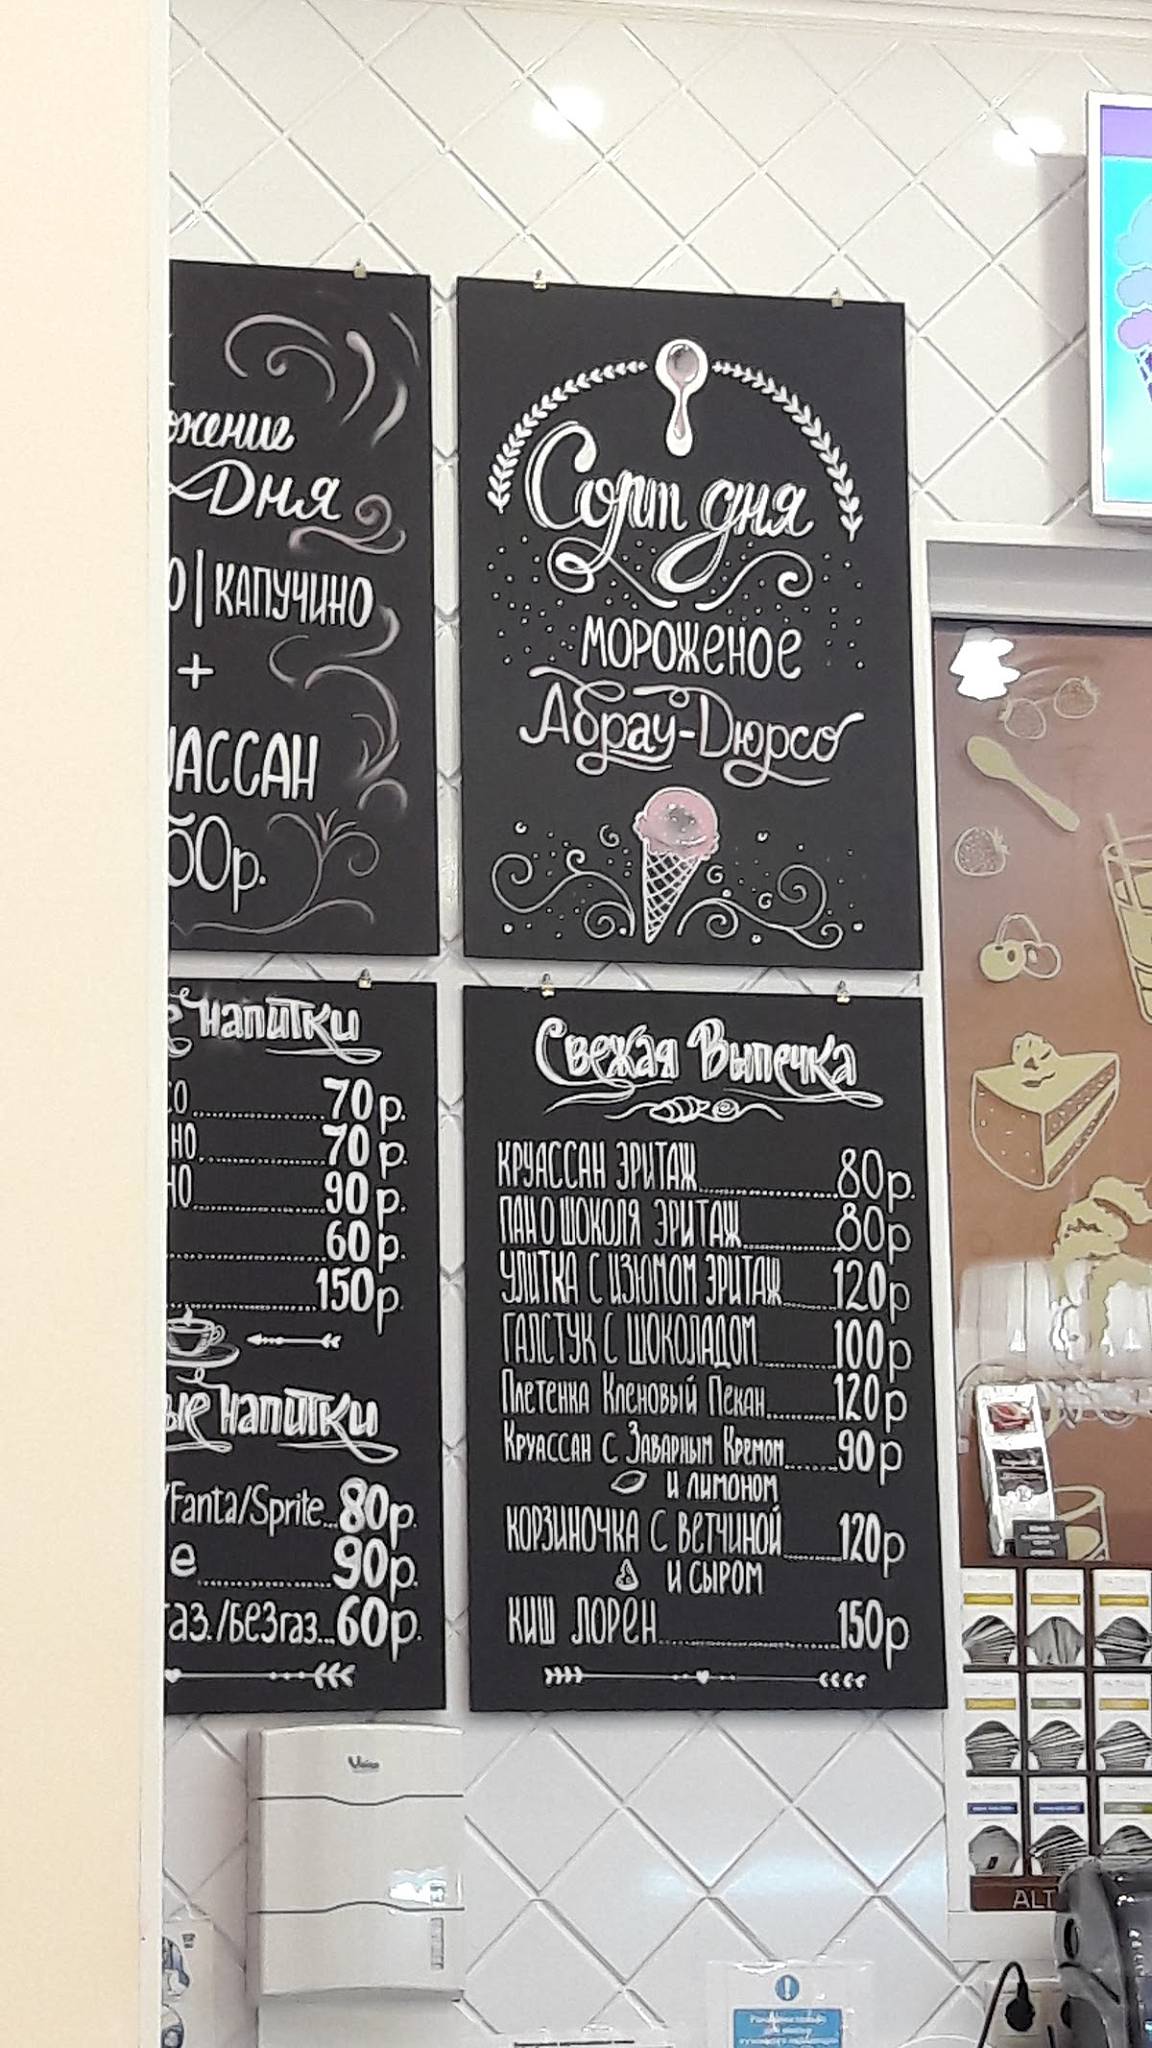 Дня
КАПУЧИНО
+
50р.
Сорт дня
МОРОЖЕНОЕ
Абрау-Дюрсо
напитки
70 р.
70 р.
90 р.
60 р.
150 р.
напитки
/Fanta/Sprite...80р.
90р.
газ./безгаз...60р.
Свежая Выпечка
КРУАССАН ЭРИТАЖ 80р.
ПАН О ШОКОЛЯ ЭРИТАЖ 80р
УЛИТКА С ИЗЮМОМ ЭРИТАЖ 120р
ГАЛСТУК С ШОКОЛАДОМ 100р
Плетенка Кленовый Пекан 120р
Круассан с Заварным Кремом 90р
и лимоном
КОРЗИНОЧКА С ВЕТЧИНОЙ 120р
И СЫРОМ
КИШ ЛОРЕН 150р
Veiro
ALT